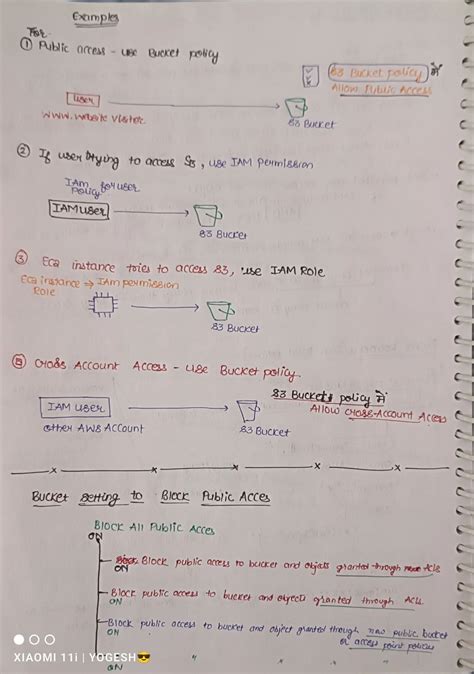 Examples
For
① Public access - use Bucket policy
S3 Bucket policy में
Allow Public Access
User
www.website visitor
S3 Bucket
② If user trying to access S3, use IAM Permission
IAM
Policy for user
IAM user
S3 Bucket
③ Ec2 instance tries to access S3, use IAM Role
Ec2 instance → IAM permission
Role
S3 Bucket
⑤ Cross Account Access - use Bucket policy.
S3 Bucket's policy में
Allow Cross-Account Access
IAM user
other AWS Account
S3 Bucket
Bucket setting to Block Public Acces
Block All Public Acces
ON
Block public access to bucket and objects granted through new ACLs
ON
Block public access to bucket and objects granted through ACLs.
ON
Block public access to bucket and object granted through new public bucket
or access point policies
ON
" " "
ON
XIAOMI 11i | YOGESH😎